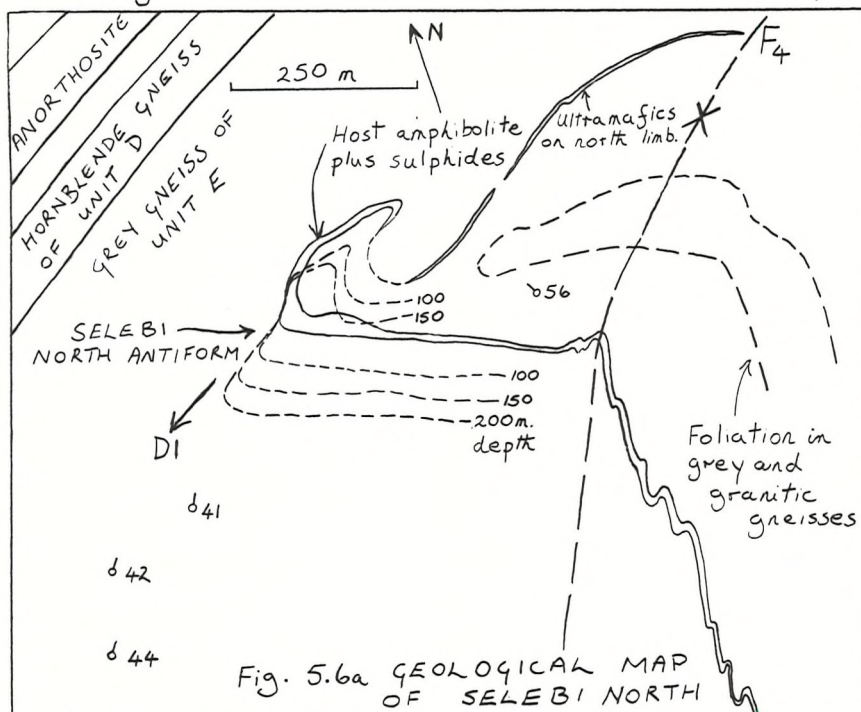 N
F4
250 m
ANORTHOSITE
HORNBLENDE GNEISS
OF UNIT D
GREY GNEISS OF
UNIT E
Host amphibolite
plus sulphides
Ultramafics
on north limb.
56
100
150
SELEBI
NORTH ANTIFORM
100
150
200m.
depth
D1
Foliation in
grey and
granitic
gneisses
41
42
44
Fig. 5.6a GEOLOGICAL MAP
OF SELEBI NORTH